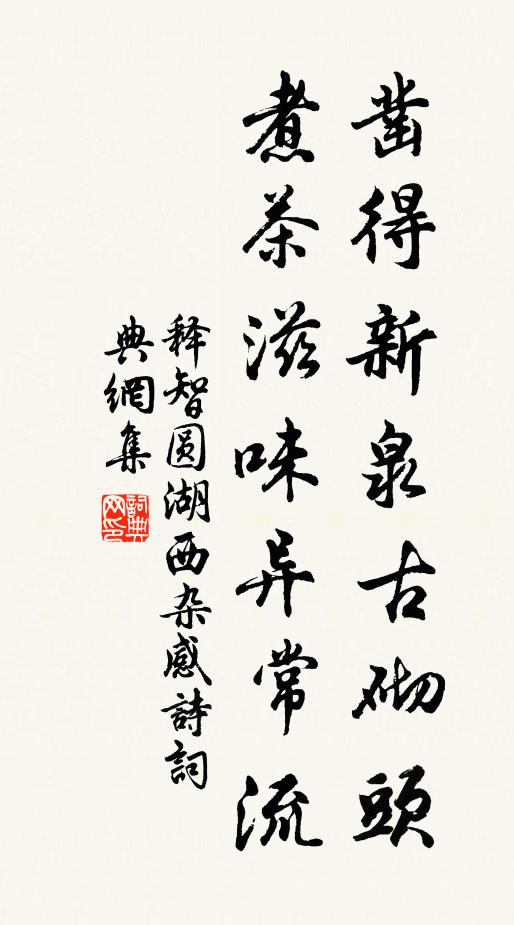 凿得新泉古砌頭
煮茶滋味异常流
释智圆湖西杂感詩詞
典網集
詞典网印